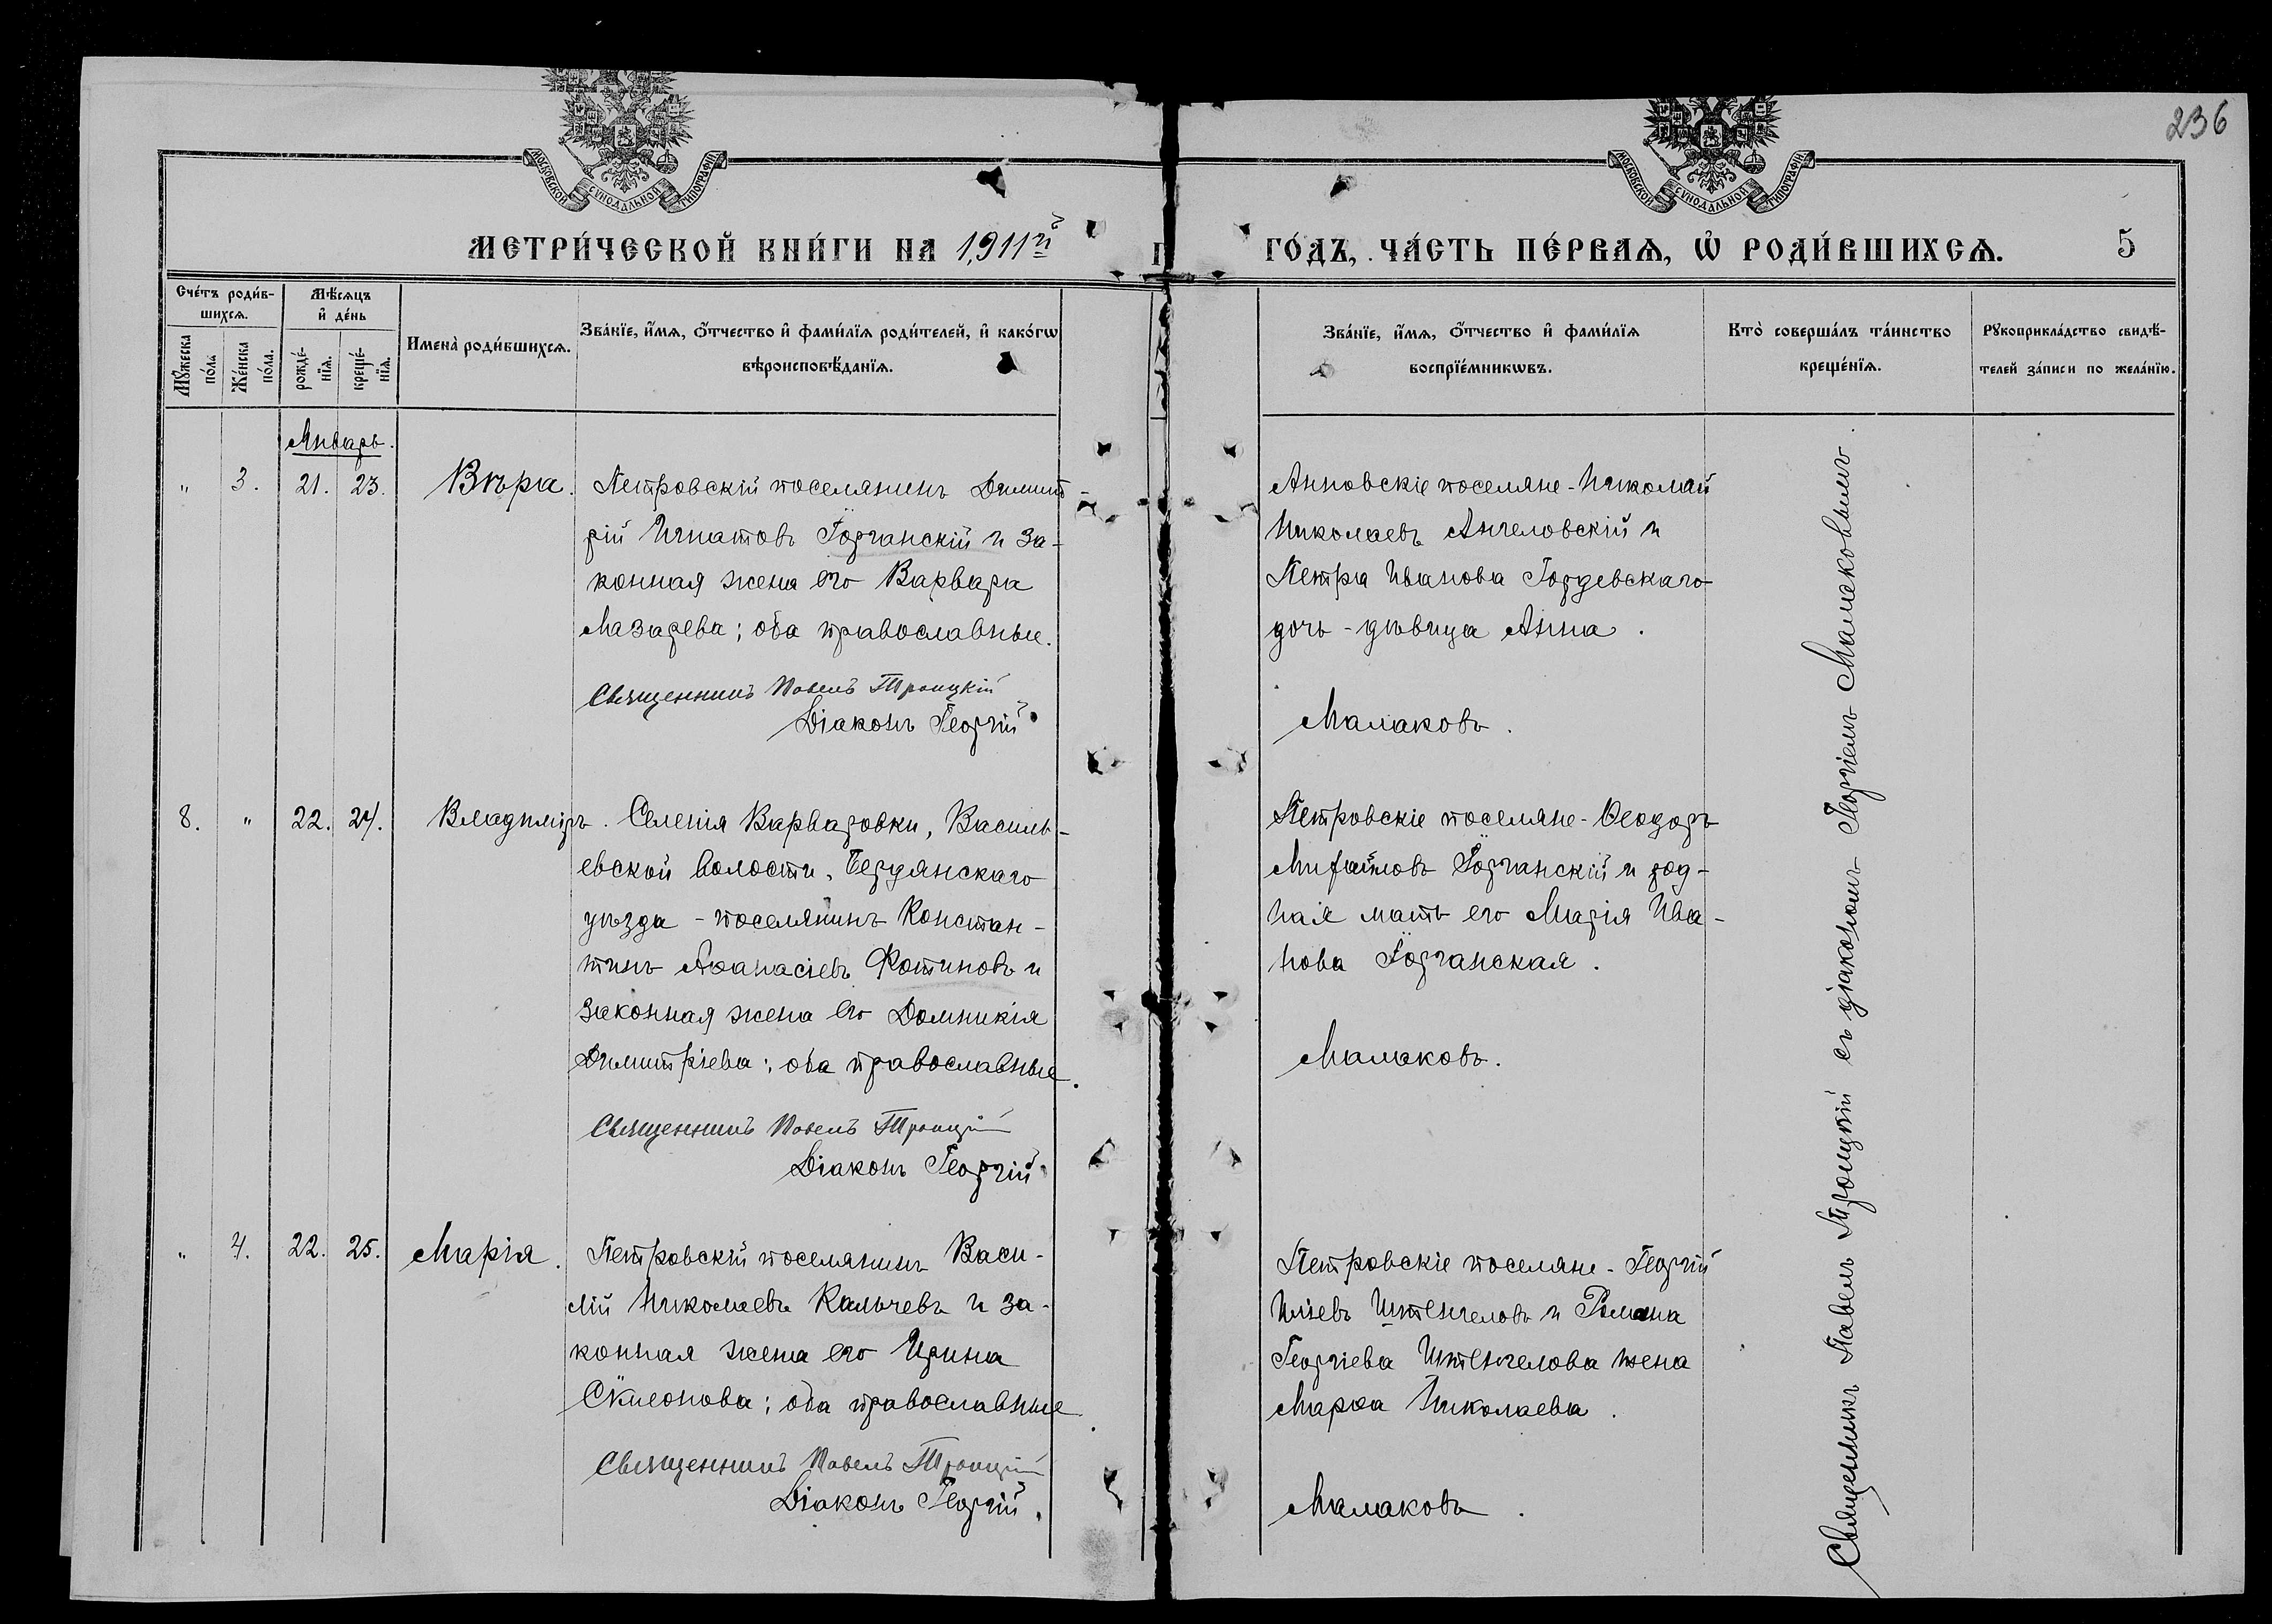 236
МОСКОВСКОЙ СѴНОДАЛЬНОЙ ТИПОГРАФІИ
МОСКОВСКОЙ СѴНОДАЛЬНОЙ ТИПОГРАФІИ
МЕТРИ́ЧЕСКОЙ КНИ́ГИ НА 1911й
ГО́ДЪ, ЧА́СТЬ ПЕ́РВАѦ, Ѡ РОДИ́ВШИХСѦ. 5
Сче́тъ роди́в-
шихсѧ.
Мꙋ́жеска по́ла
Же́нска по́ла.
Мѣ́сѧцъ
и҆ де́нь
рожде́-
нїѧ.
креще́-
нїѧ.
Имена̀ роди́вшихсѧ.
Зва́нїе, и҆́мѧ, ѻ҆́тчество и҆ фами́лїѧ роди́телей, и҆ како́гѡ
вѣроисповѣ́данїѧ.
Зва́нїе, и҆́мѧ, ѻ҆́тчество и҆ фами́лїѧ
воспрїе́мникѡвъ.
Кто̀ соверша́лъ та́инство
креще́нїѧ.
Рꙋкоприкла́дство свидѣ́-
телей за́писи по жела́нїю.
Январь.
" 3. 21. 23. Вѣра. Петровскій поселянинъ Димит-
рій Игнатовъ Гöрчанскій и за-
конная жена его Варвара
Лазарева; оба православные.
Священникъ Павелъ Троицкій
Діаконъ Георгій
Анновскіе поселяне - Николай
Николаевъ Ангеловскій и
Петра Иванова Гордевскаго
дочь - дѣвица Анна.
Малаковъ.
8. " 22. 24. Владиміръ. Селенія Варваровки, Василь-
евской волости, Бердянскаго
уѣзда - поселянинъ Констан-
тинъ Аѳанасіевъ Фотиновъ и
законная жена его Домникія
Димитріева; оба православные.
Священникъ Павелъ Троицкій
Діаконъ Георгій
Петровскіе поселяне - Ѳеодоръ
Михайловъ Гöрчанскій и род-
ная мать его Марія Ива-
нова Гöрчанская.
Малаковъ.
" 4. 22. 25. Марія. Петровскій поселянинъ Васи-
лій Николаевъ Кальчевъ и за-
конная жена его Ирина
Сѵмеонова; оба православные.
Священникъ Павелъ Троицкій
Діаконъ Георгій
Петровскіе поселяне - Георгій
Иліевъ Штенгеловъ и Романа
Георгіева Штенгелова жена
Марѳа Николаева.
Малаковъ.
Священникъ Павелъ Троицкій съ діакономъ Георгіемъ Малаковымъ.